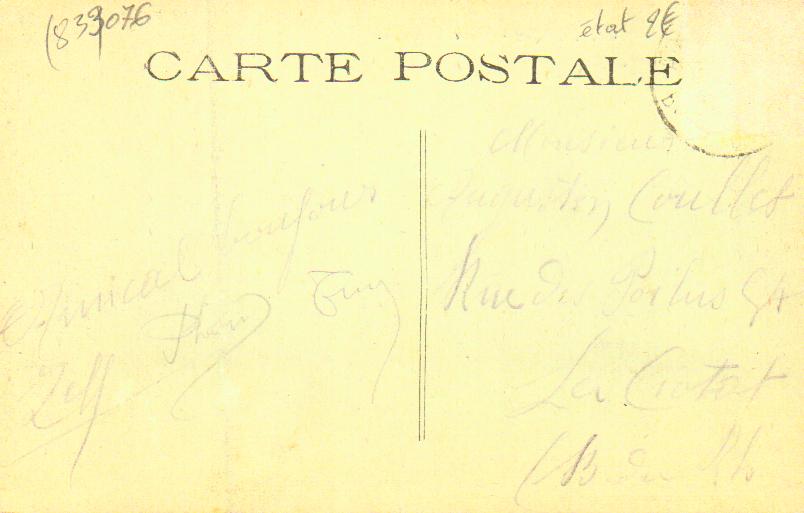 (839)076
état 2€
CARTE POSTALE
Amical bonjour
Monsieur
Augustin Coullet
Rue des Poilus 54
La Ciotat
(B du Rh